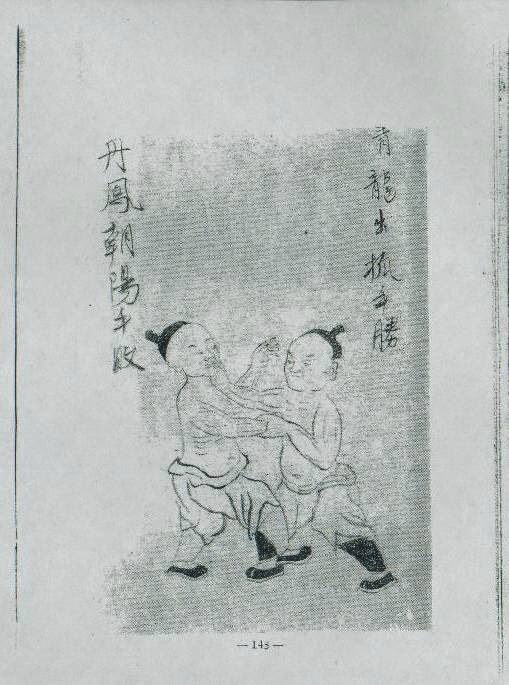 青龍出抓手勝
丹鳳朝陽手敗
— 143 —